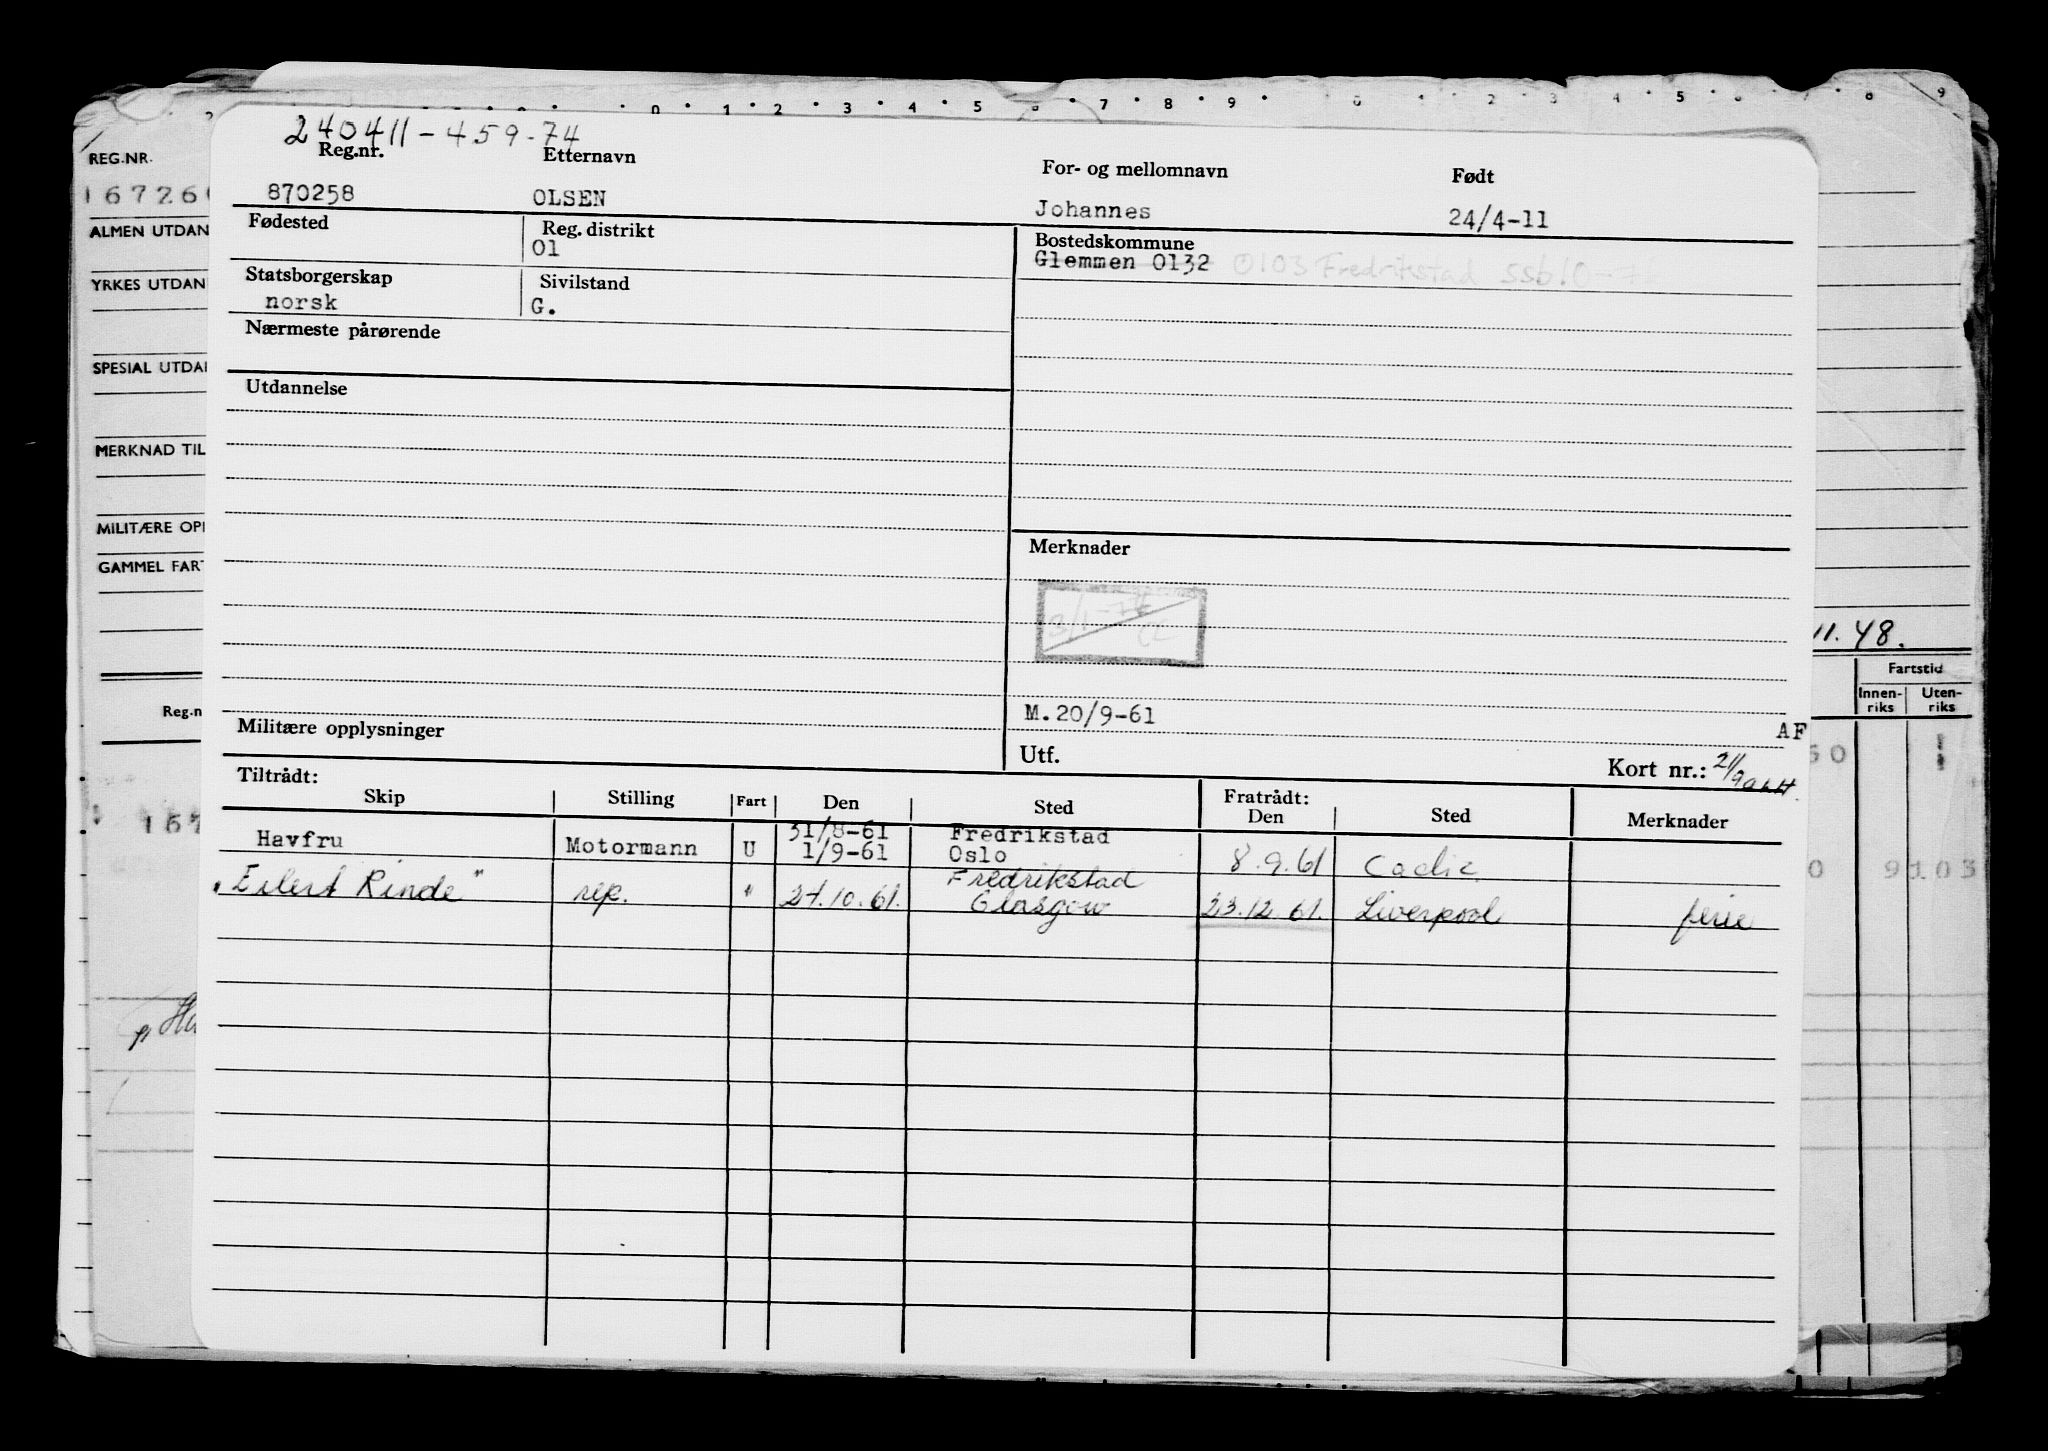 0 1 2 3 4 5 6 7 8 9 0 2 3 4 5 6 7 8 9
240411-459-74
Reg.nr. Etternavn For- og mellomnavn Født
870258 OLSEN Johannes 24/4-11
Fødested Reg. distrikt Bostedskommune
01 Glemmen 0132 0103 Fredrikstad ssb10-7
Statsborgerskap Sivilstand
norsk G.
Nærmeste pårørende
Utdannelse
Merknader
3/1-74
M.20/9-61
AF
Militære opplysninger Utf. Kort nr.:
Tiltrådt: Fratrådt:
Skip Stilling Fart Den Sted Den Sted Merknader
31/8-61 Fredrikstad
Havfru Motormann U 1/9-61 Oslo 8.9.61 Cadiz
Fredrikstad
"Eilert Rinde" rep. " 24.10.61. Glasgow 23.12.61. Liverpool ferie
REG.NR.
16726
ALMEN UTDAN
YRKES UTDAN
SPESIAL UTDA
MERKNAD TIL
MILITÆRE OP
GAMMEL FART
Reg.n
167
11.48.
Fartstid
Innen- Uten-
riks riks
50
0 9 1.03